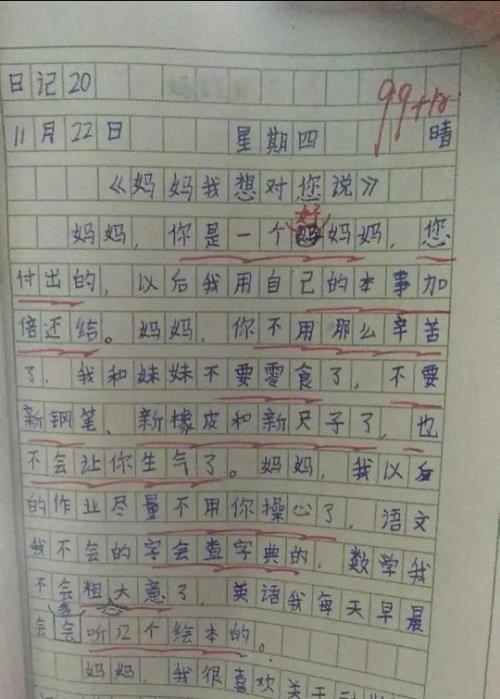 日记20
99+
11月22日 星期四 晴
《妈妈我想对您说》
妈妈，你是一个好妈妈，您
付出的，以后我用自己的本事加
倍还结。妈妈，你不用那么辛苦
了，我和妹妹不要零食了，不要
新钢笔、新橡皮和新尺子了，也
不会让你生气了。妈妈，我以后
的作业尽量不用你操心了，语文
我不会的字会查字典的，数学我
不会粗大意了，英语我每天早晨
会会听12个绘本的。
妈妈，我很喜欢关于